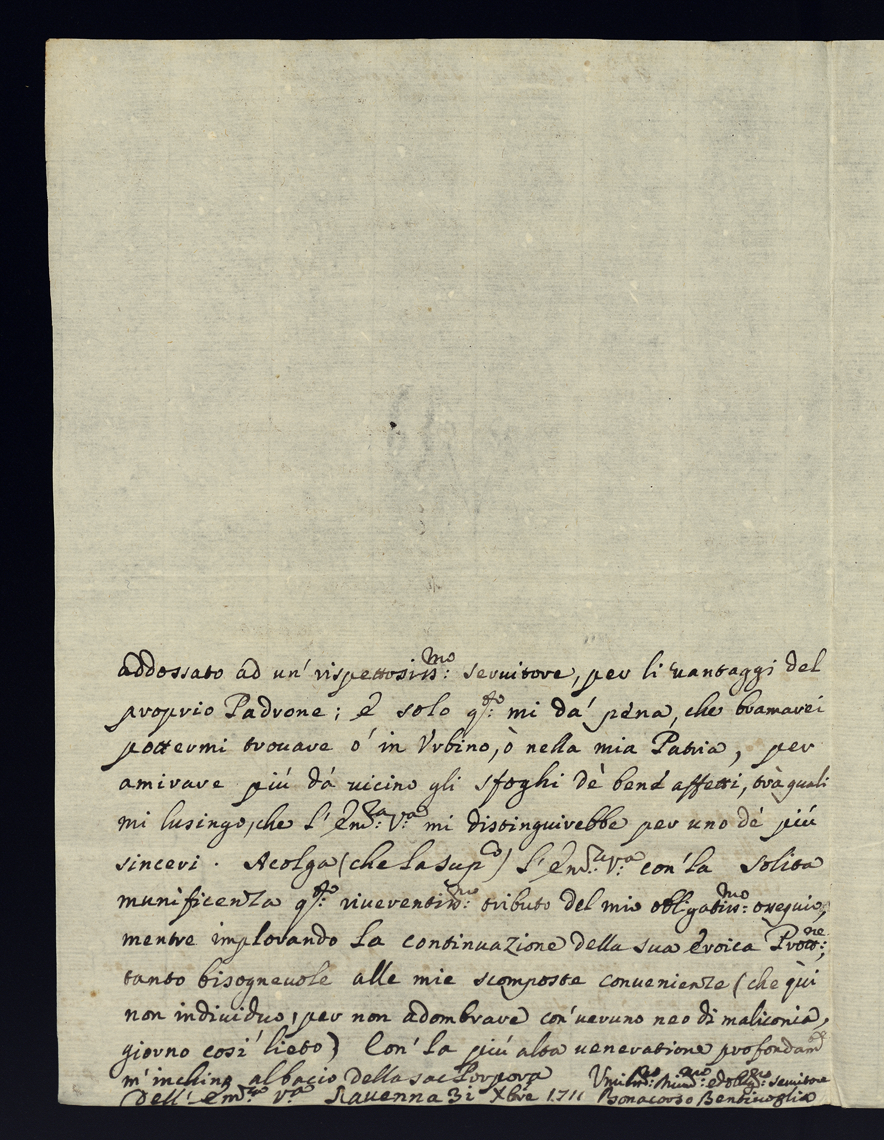 addossato ad un' rispettosiss:mo seruitore, per li uantaggi del
proprio Padrone; è solo q:sto mi dà pena, che bramarei
pottermi trouare ò in Vrbino, ò nella mia Patria, per
amirare più dà uicino gli sfoghi dè bené affetti, trà quali
mi lusingo, che l'Em:za V:a mi distinguirebbe per uno dè più
sinceri. Acolga (che la sup:co) l'Em:za V:a con' la solita
munificenza q:sto riuerentiss:mo tributo del mio obligatiss:mo ossequio,
mentre implorando la continuazione della sua èroica Protto:ne,
tanto bisogneuole alle mie scomposte conuenienze (che quì
non indiuiduo, per non adombrare con' ueruno neo di maliconia,
giorno così lieto) Con' la più alta ueneratione profondam:te
m' inchino al bacio della sac: Porpora
Vmilis:mo Deuo:mo ed obblig:mo seruitore
dell' Em:za V:a Rauenna 31 Xbre 1711 Bonacorso Bentiuoglio